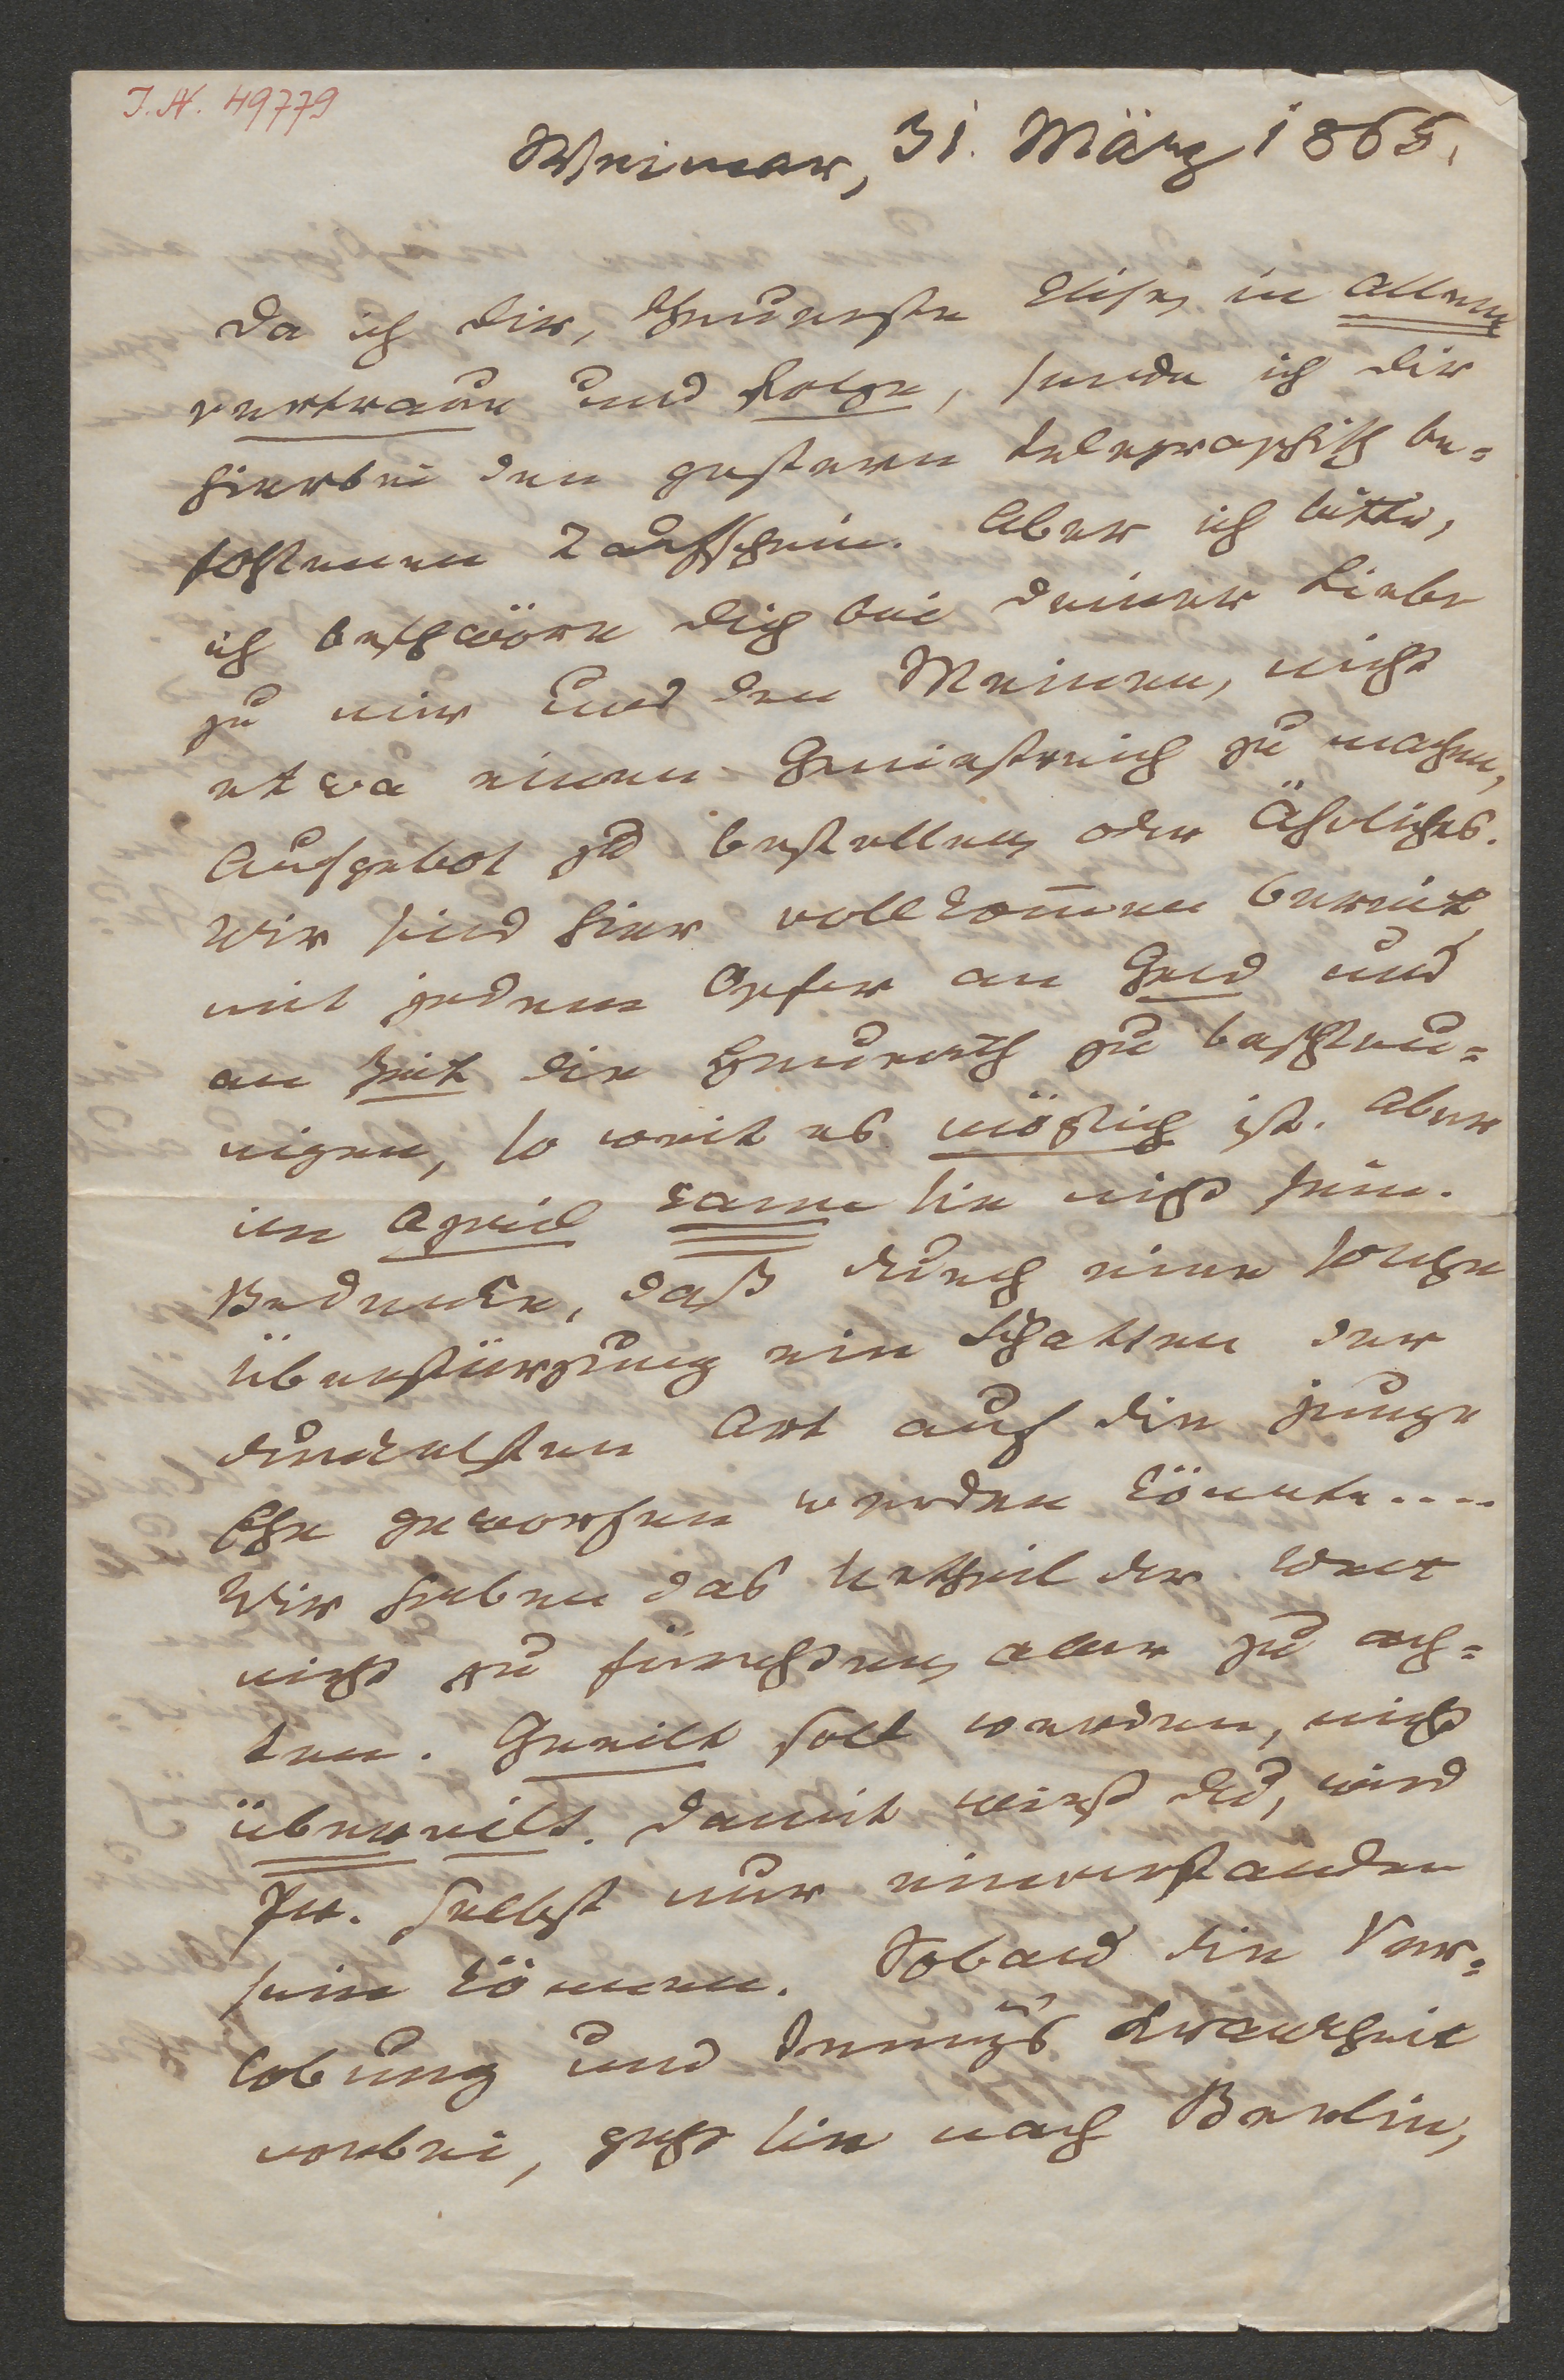 J. N. 49779
Weimar, 31. März 1865.
Da ich Dir, theuerste Elise, in Allem
vertraue und folge, sende ich Dir
hierbei den gestern telegraphisch be-
fohlenen Taufschein. Aber ich bitte,
ich beschwöre Dich bei Deiner Liebe
zu mir und den Meinen, nicht
etwa einen Geniestreich zu machen,
Aufgebot zu bestellen, oder Ähnliches.
Wir sind hier vollkom̅en bereit,
mit jedem Opfer an Geld und
an Zeit die Heurath zu beschleu-
nigen, so weit es möglich ist. Aber
im April kann sie nicht sein.
Bedenke, daß durch eine solche
Überstürzung ein Schatten der
dunkelsten Art auf die junge
Ehe geworfen werden könnte....
Wir haben das Urtheil der Welt
nicht zu fürchten, aber zu ach-
ten. Geeilt soll werden, nicht
übereilt. Damit wirst Du, wird
selbst nur einverstanden
sein können. Sobald die Ver-
lobung und Jenny's Krankheit
vorbei, geht sie nach Berlin,